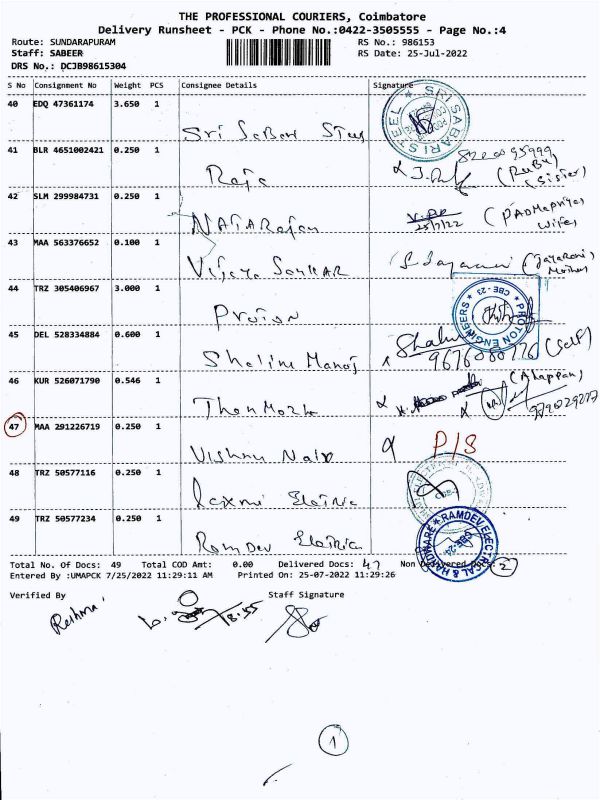 THE PROFESSIONAL COURIERS, Coimbatore
Delivery Runsheet - PCK - Phone No.:0422-3505555 - Page No.:4
Route: SUNDARAPURAM RS No.: 986153
Staff: SABEER RS Date: 25-Jul-2022
DRS No.: DCJB98615304
S No Consignment No Weight PCS Consignee Details Signature
40 EDQ 47361174 3.650 1 Sri Sabari Steel SRI SABARI STEEL
41 BLR 4651002421 0.250 1 Raja (Rubu Sister)
42 SLM 299984731 0.250 1 NATARajan 25/7/22 (PADMapriya Wife)
43 MAA 563376652 0.100 1 Vijaya Sankar (Jayarani Mother)
44 TRZ 305406967 3.000 1 Proton PROTON ENGINEERS CBE-23
45 DEL 528334884 0.600 1 Shalini Manoj (Self)
46 KUR 526071790 0.546 1 (Alappan)
47 MAA 291226719 0.250 1 Vishnu Nair P/S
48 TRZ 50577116 0.250 1 Laxmi
49 TRZ 50577234 0.250 1 Ramdev RAMDEV ELECTRICAL & HARDWARE
Total No. Of Docs: 49 Total COD Amt: 0.00 Delivered Docs: 47 Non Delivered Docs: 2
Entered By :UMAPCK 7/25/2022 11:29:11 AM Printed On: 25-07-2022 11:29:26
Verified By Staff Signature
Reshma 18:55
1